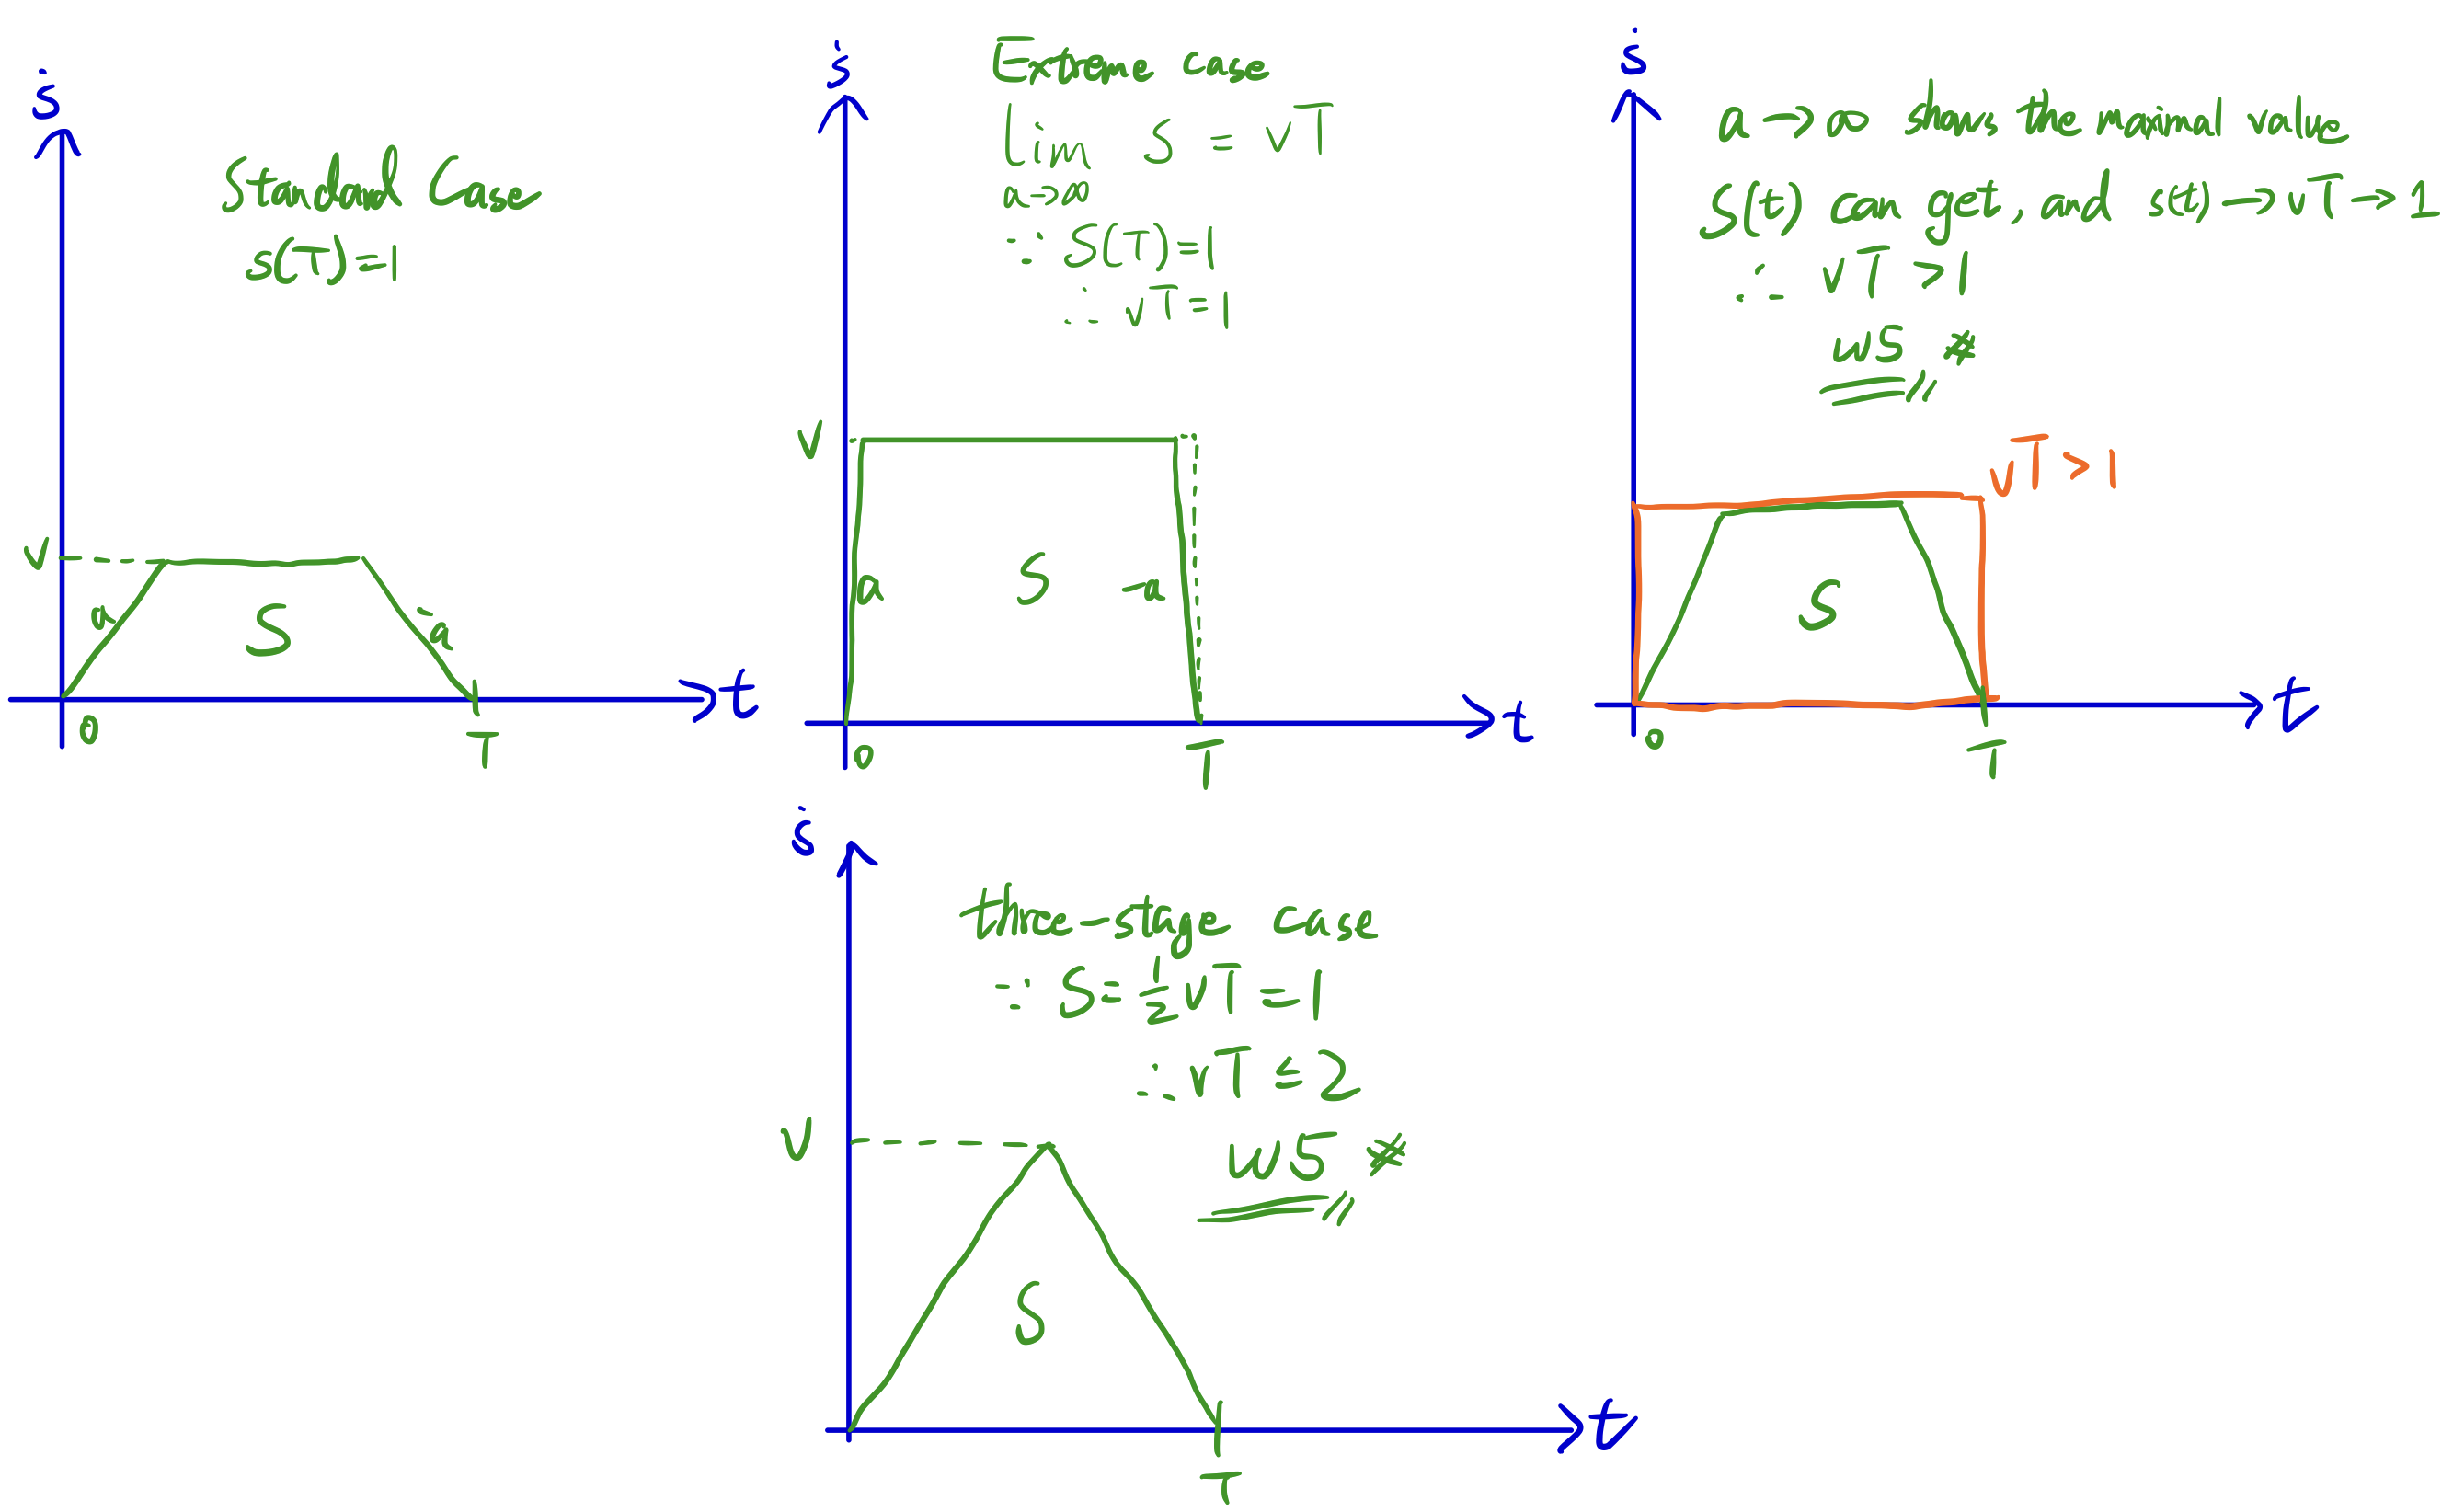 ṡ
Standard Case
s(T)=1
v
a
S
-a
t
0
T
ṡ
Extreme case
lim S = vT
a→∞
∵ S(T)=1
∴ vT=1
v
a
S
-a
t
0
T
ṡ
a→∞ shows the maximal value
S(t) can get, and s(t)→vT→1
∴ vT>1
w5 *
vT>1
S
t
0
T
ṡ
three-stage case
∵ S=1/2 vT=1
∴ vT≤2
w5 *
v
S
t
T